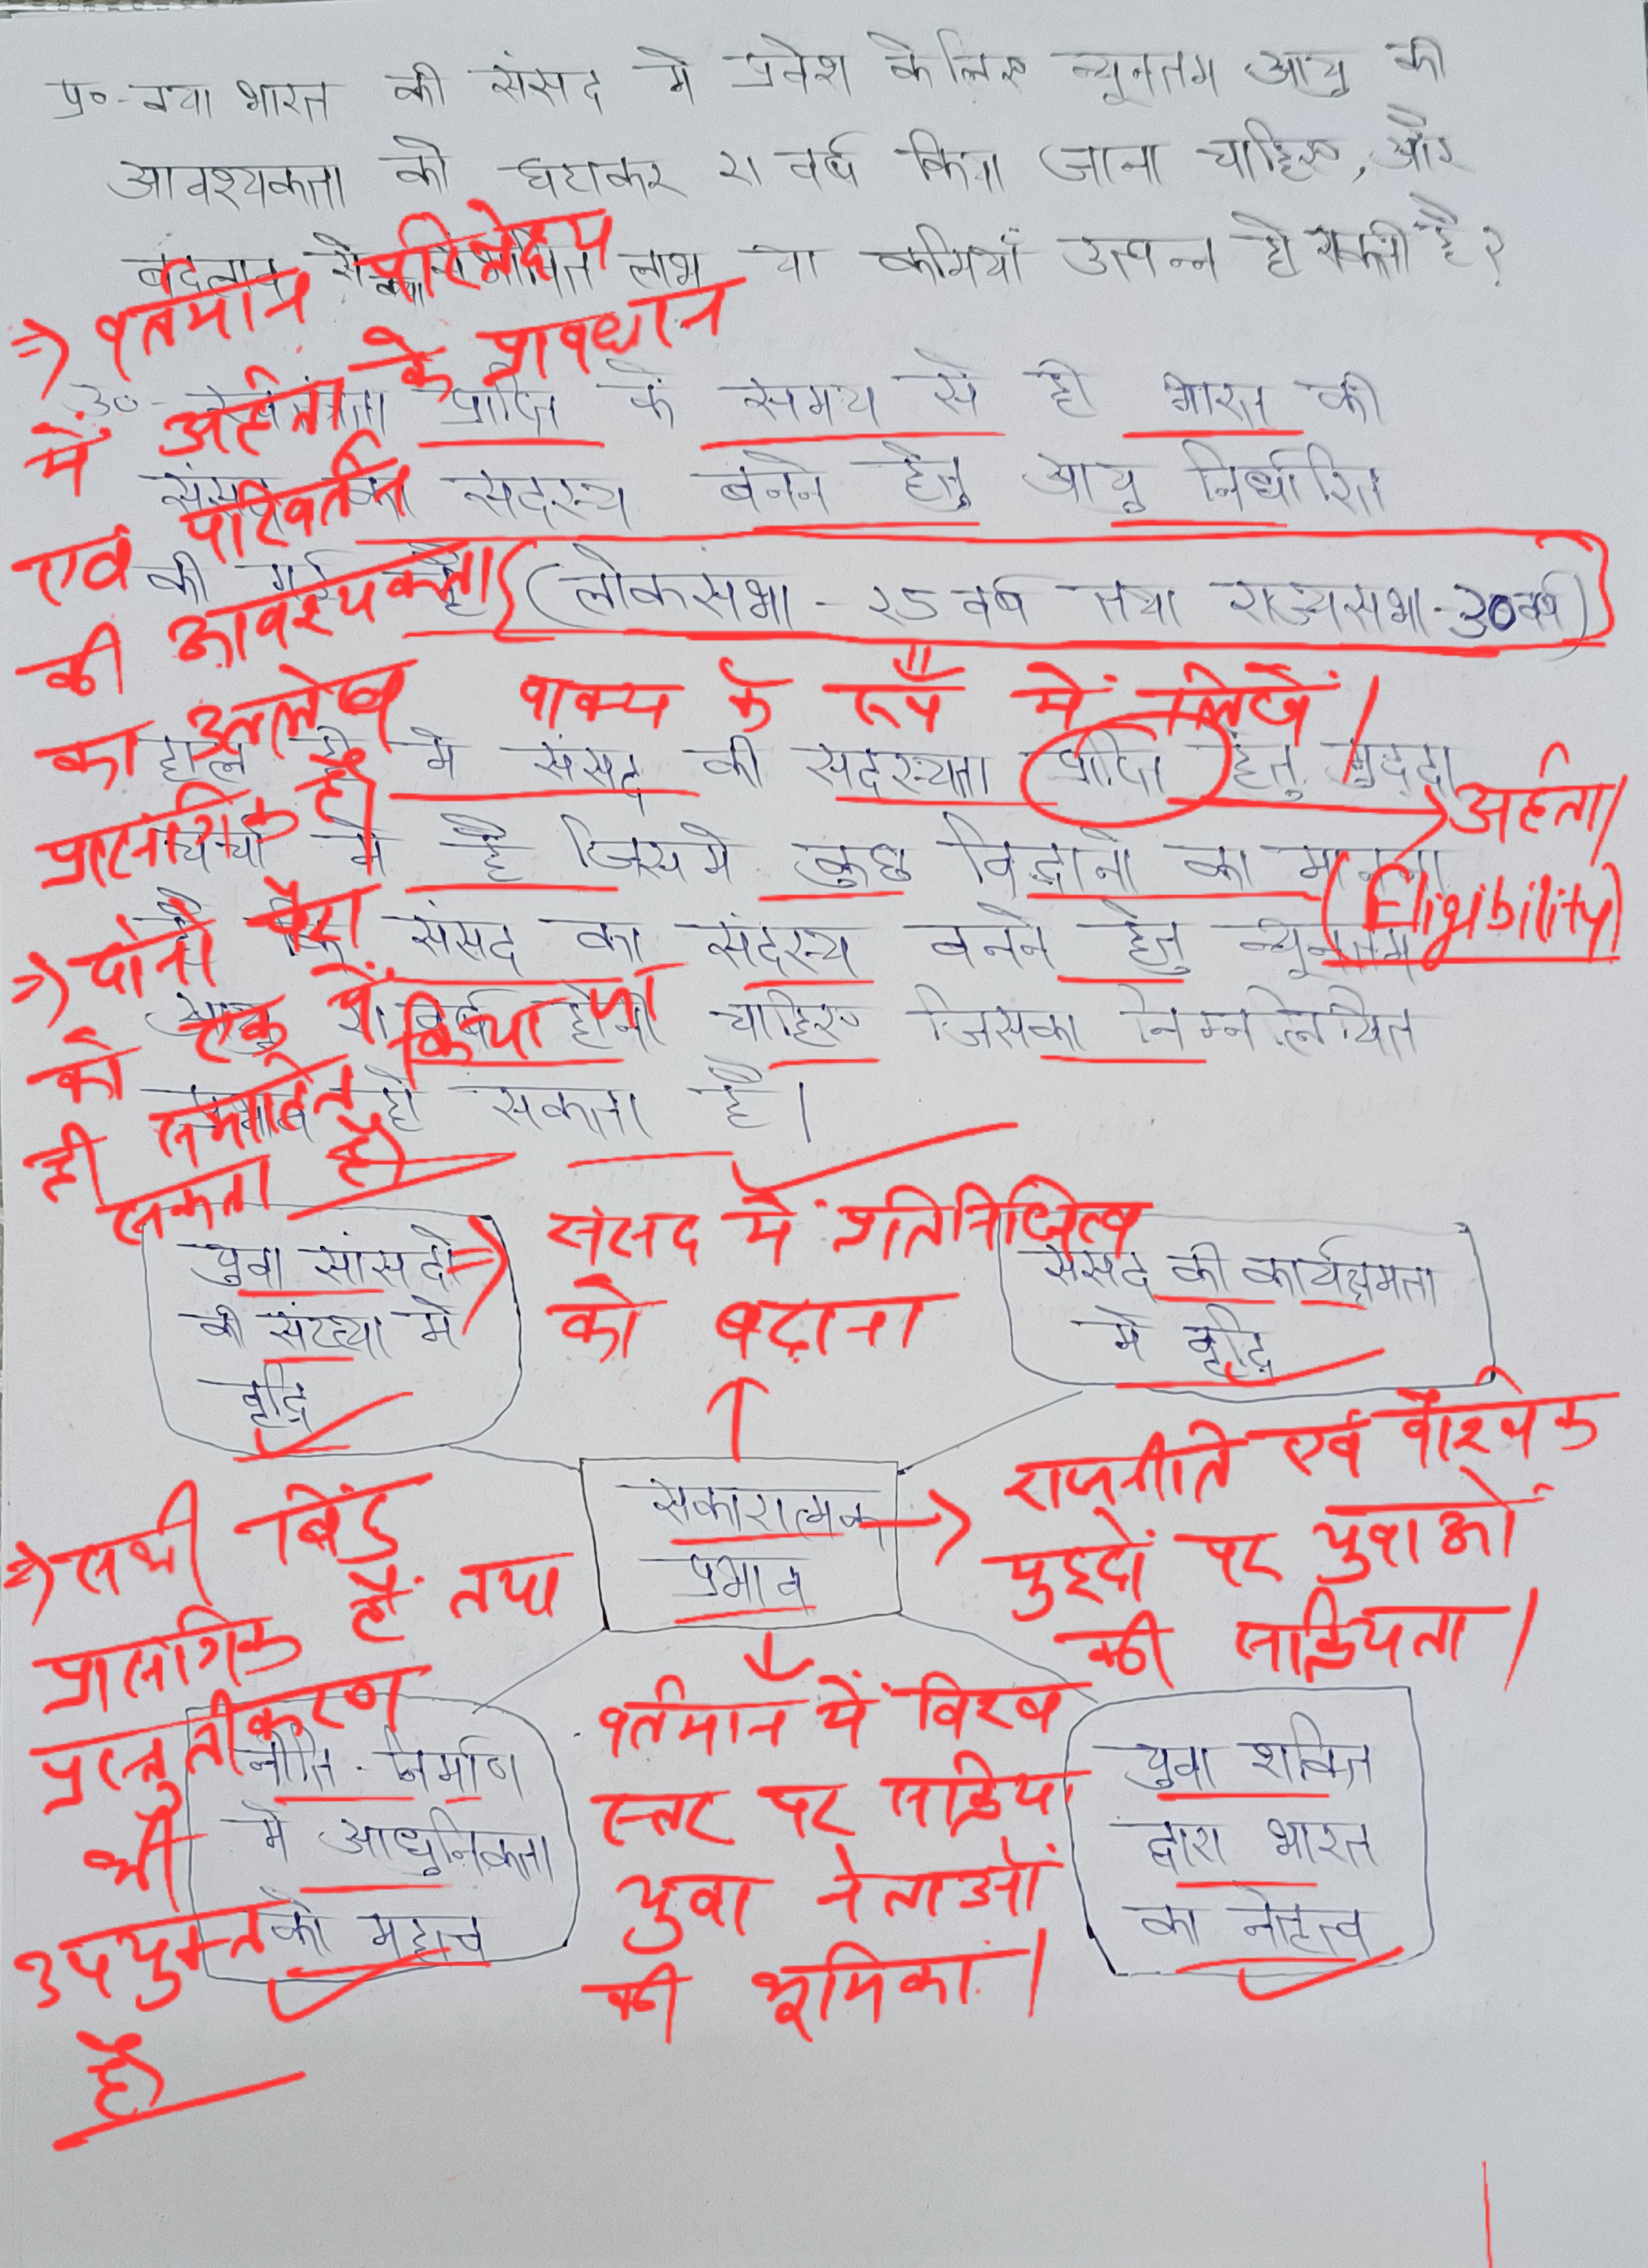 प्र०- क्या भारत की संसद में प्रवेश के लिए न्यूनतम आयु की
आवश्यकता को घटाकर २१ वर्ष किया जाना चाहिए, और
बदलाव से क्या संभावित लाभ या कमियाँ उत्पन्न हो सकती है?
=> वर्तमान परिप्रेक्ष्य
में अर्हता के प्रावधान
एवं परिवर्तन
की आवश्यकता
का उल्लेख
प्रासंगिक है।
उ०- स्वतंत्रता प्राप्ति के समय से ही भारत की
संसद का सदस्य बनने हेतु आयु निर्धारित
की गई है (लोकसभा - २५ वर्ष तथा राज्यसभा - 30 वर्ष)
वाक्य के रूप में लिखें।
हाल ही में संसद की सदस्यता प्राप्ति हेतु मुद्दा
अर्हता/
(Eligibility)
चर्चा में है जिसमे कुछ विद्वानो का मानना
है कि संसद का सदस्य बनने हेतु न्यूनतम
आयु २१ वर्ष होनी चाहिए जिसका निम्नलिखित
प्रभाव हो सकता है।
=> दोनों पैरा
को एक में
ही समाहित किया जा
सकता है।
युवा सांसदो
की संख्या में
वृद्धि
=> संसद में प्रतिनिधित्व
को बढ़ाना
संसद की कार्यक्षमता
में वृद्धि
सकारात्मक
प्रभाव
राजनीति एवं वैश्विक
मुद्दों पर युवाओं
की सक्रियता।
=> सभी बिंदु
प्रासंगिक हैं तथा
प्रस्तुतीकरण
भी
उपयुक्त
है।
नीति-निर्माण
में आधुनिकता
को महत्व
वर्तमान में विश्व
स्तर पर सक्रिय
युवा नेताओं
की भूमिका।
युवा शक्ति
द्वारा भारत
का नेतृत्व